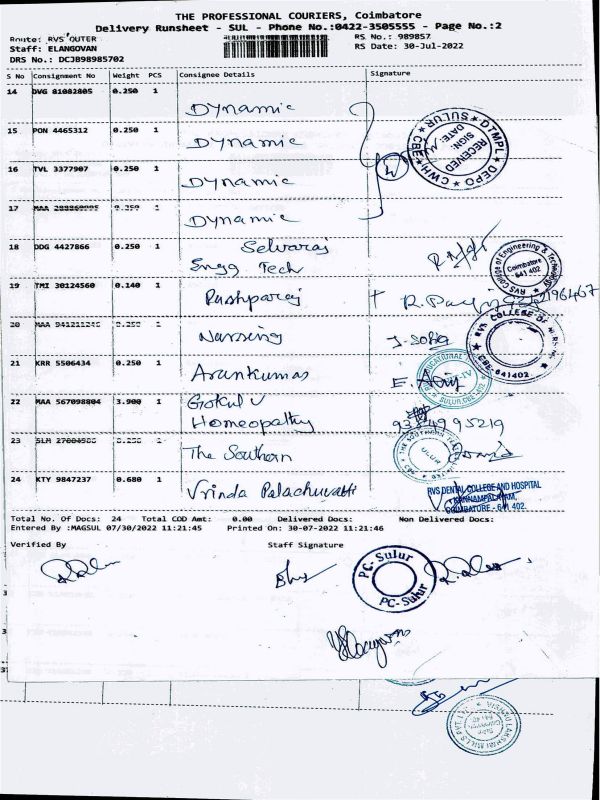 THE PROFESSIONAL COURIERS, Coimbatore
Delivery Runsheet - SUL - Phone No.:0422-3505555 - Page No.:2
Route: RVS OUTER
RS No.: 989857
Staff: ELANGOVAN
RS Date: 30-Jul-2022
DRS No.: DCJB98985702
S No Consignment No Weight PCS Consignee Details Signature
14 DVG 81082805 0.250 1 Dynamic
15 PON 4465312 0.250 1 Dynamic
16 TVL 3377907 0.250 1 Dynamic
17 MAA 1 Dynamic
DTMPL DEPO CWH SULUR CBE
RECEIVED SIGN: DATE:
18 DDG 4427866 0.250 1 Selvaraj
Engg Tech
RVS College of Engineering & Technology
Coimbatore 641 402
19 TMI 30124560 0.140 1 Pushparaj
20 MAA 1 Nursing J. Sofia
RVS COLLEGE OF NURSING CBE-641402
21 KRR 5506434 0.250 1 Arunkumar
SULUR, CBE-402
22 MAA 567098804 3.900 1 Gokul V
Homeopathy
23 SLM 1 The Southern
SULUR
24 KTY 9847237 0.680 1 Vrinda
RVS DENTAL COLLEGE AND HOSPITAL
KANNAMPALAYAM,
COIMBATORE - 641 402.
Total No. Of Docs: 24 Total COD Amt: 0.00 Delivered Docs: Non Delivered Docs:
Entered By :MAGSUL 07/30/2022 11:21:45 Printed On: 30-07-2022 11:21:46
Verified By Staff Signature
PC-Sulur
PC-Sulur